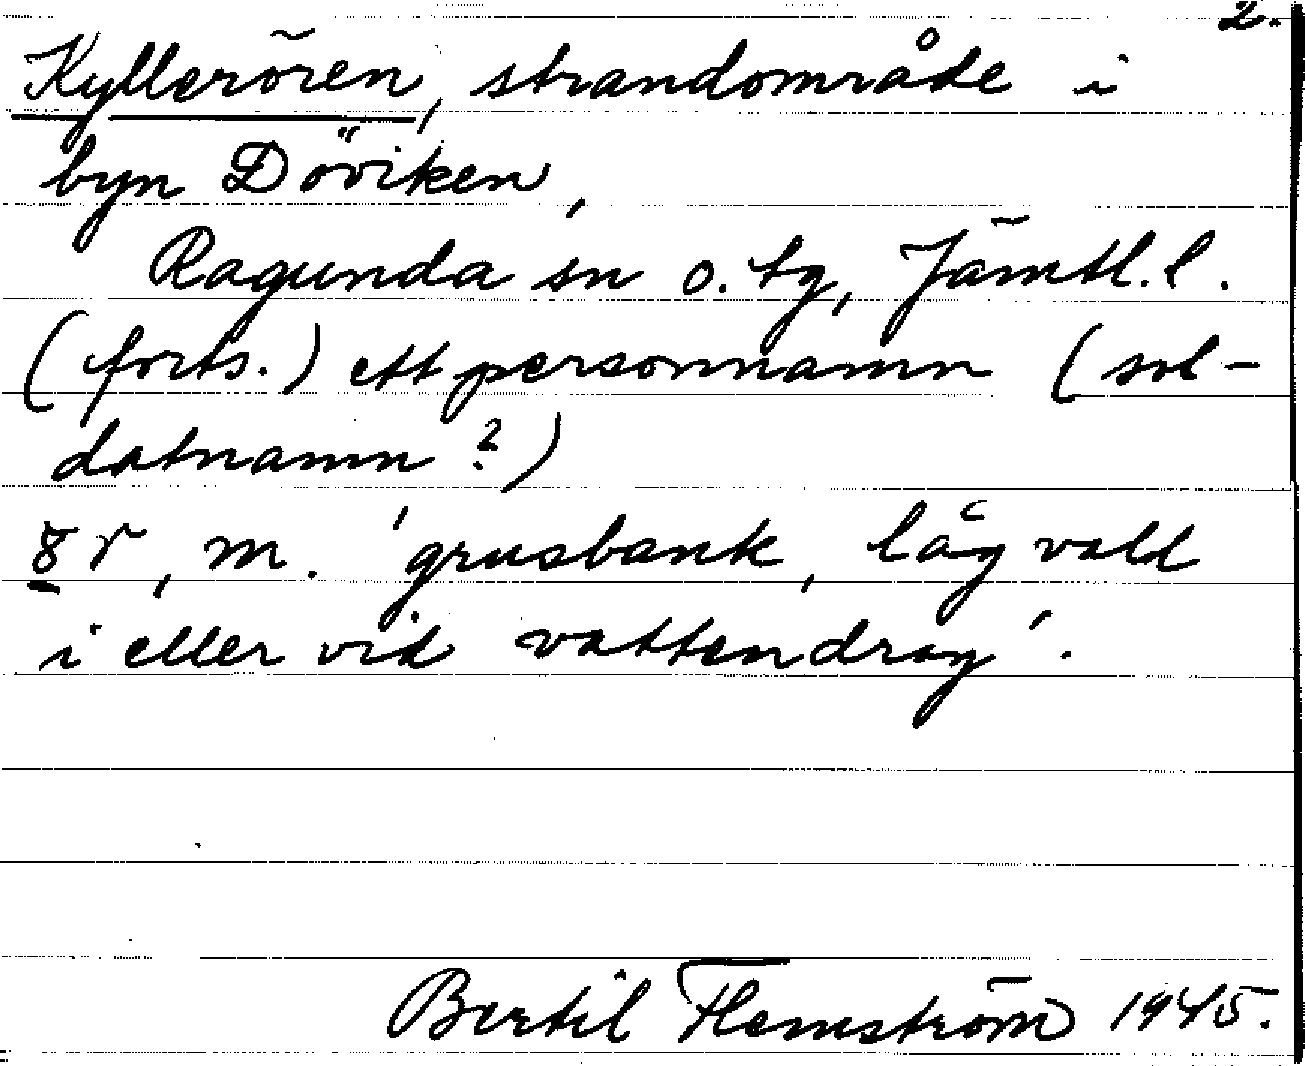 2.
Kyllerören, strandområde i
byn Döviken,
Ragunda sn o. tg, Jämtl. l.
(forts.) ett personnamn (sol-
datnamn?)
ȣr, m. 'grusbank, låg vall
i eller vid vattendrag'.
Bertil Flemström 1945.